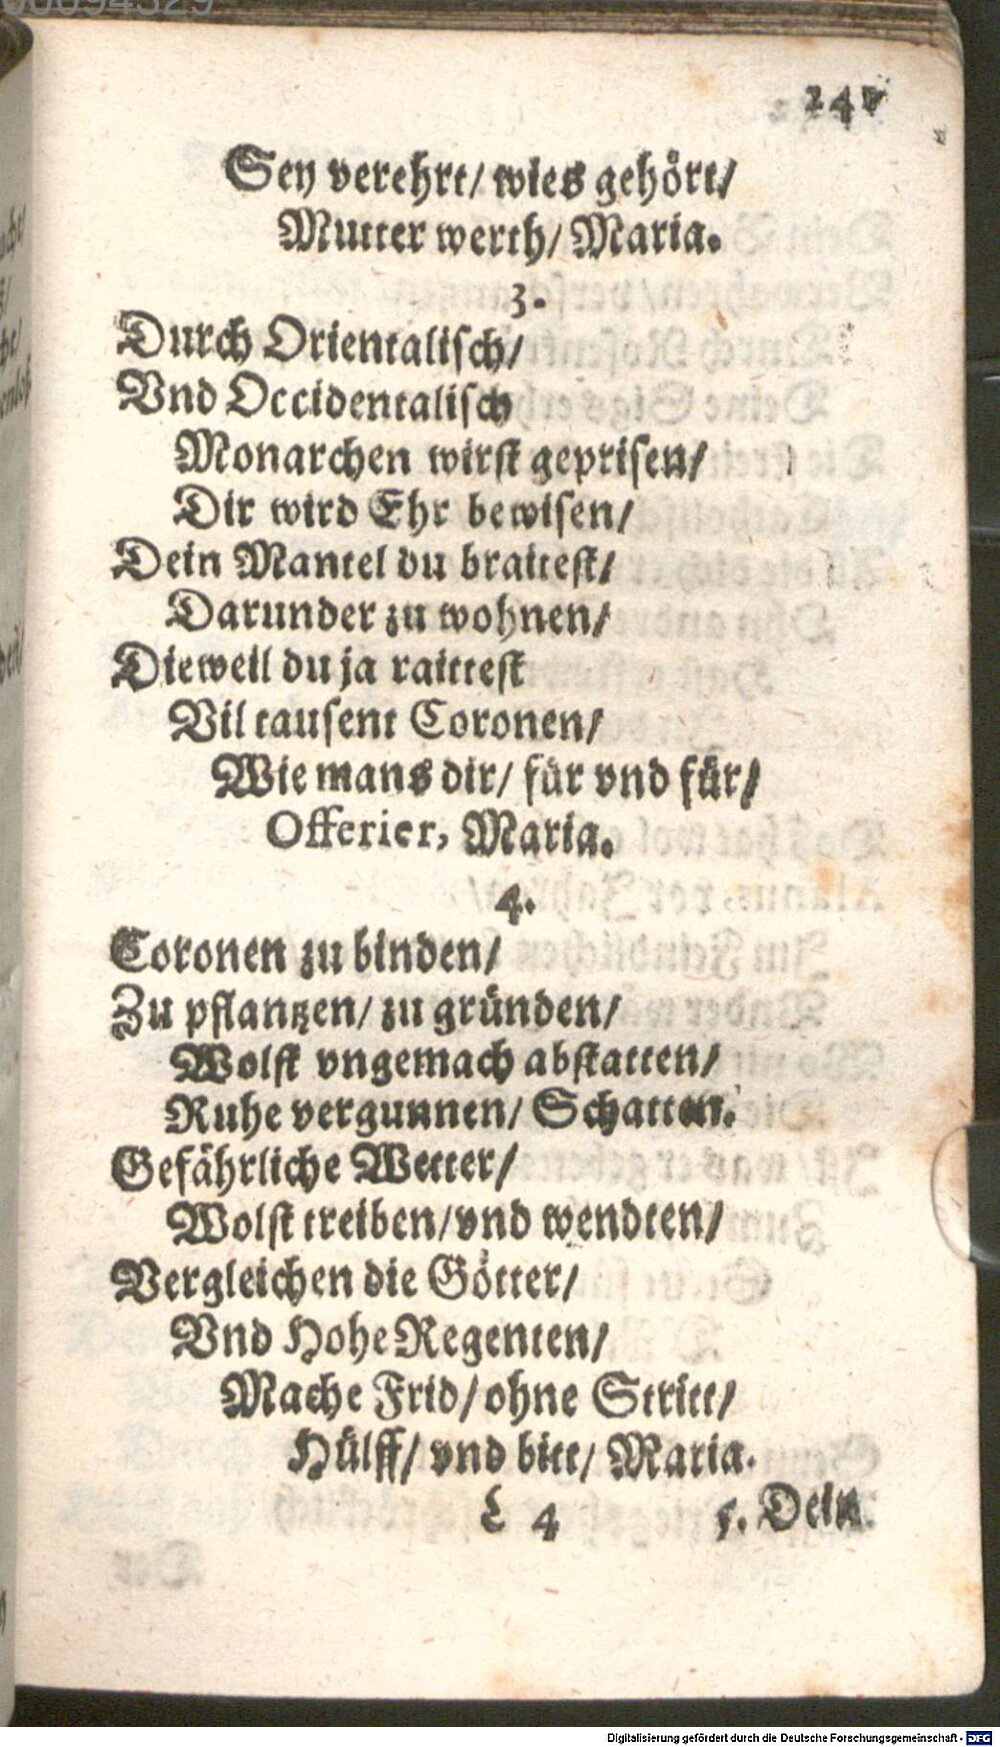 Sey verehrt/ wies gehört/
Mutter werth/ Maria.
3.
Durch Orientalisch/
Vnd Occidentalisch
Monarchen wirst geprisen/
Dir wird Ehr bewisen/
Dein Mantel du braitest/
Darunder zu wohnen/
Dieweil du ja raittest
Vil tausent Coronen/
Wie mans dir/ für vnd für/
Offerier, Maria.
4.
Coronen zu binden/
Zu pflantzen/ zu gründen/
Wolst vngemach abstatten/
Ruhe vergunnen/ Schatten.
Gefährliche Wetter/
Wolst treiben/ vnd wendten/
Vergleichen die Götter/
Vnd Hohe Regenten/
Mache Frid/ ohne Stritt/
Hülff/ vnd bitt/ Maria.
L 4 5. Dein
Digitalisierung gefördert durch die Deutsche Forschungsgemeinschaft - DFG